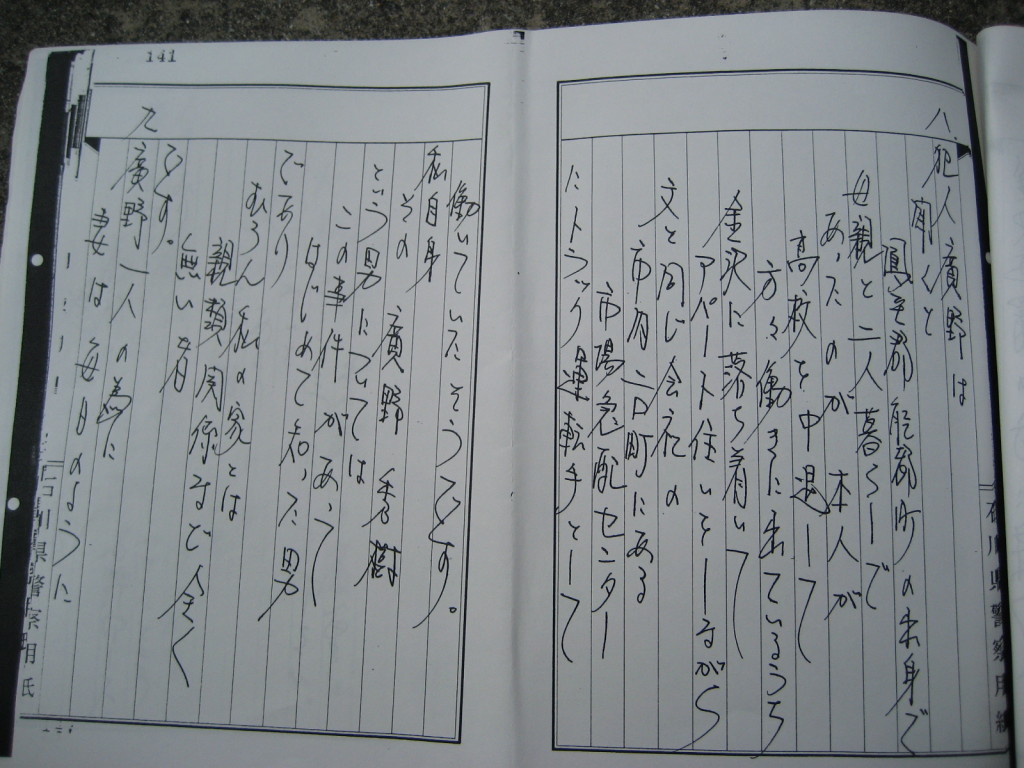 八、犯人廣野は
聞くと
鳳至郡能都町の出身で
母親と二人暮らしで
あったのが本人が
高校を中退して
方々働きに出ているうち
金沢に落ち着いて
アパート住いをしながら
父と同じ会社の
市内 二口町にある
市場急配センター
にトラック運転手として
働いていたそうです。
私自身
その 廣野 秀樹
という男については
この事件があって
はじめて知った男
であり
むろん私の家とは
親類関係など全く
無い者
です。
九
廣野一人の為に
妻は毎日のように
石川県警察用紙
石川県警察用紙
141